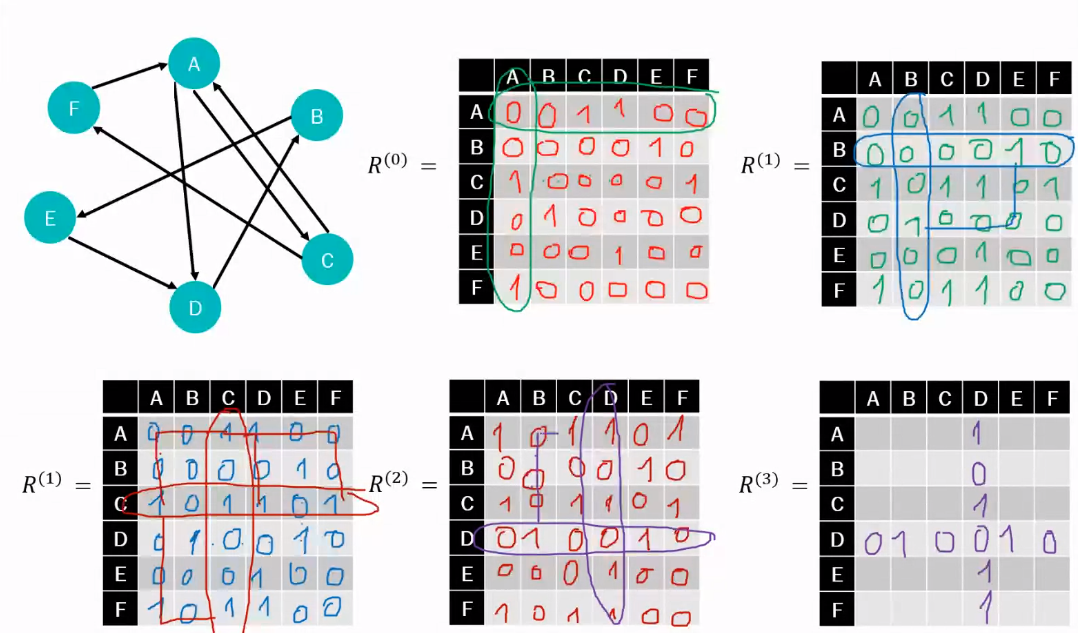 A
F
B
E
C
D
R(0) =
A B C D E F
A 0 0 1 1 0 0
B 0 0 0 0 1 0
C 1 0 0 0 0 1
D 0 1 0 0 0 0
E 0 0 0 1 0 0
F 1 0 0 0 0 0
R(1) =
A B C D E F
A 0 0 1 1 0 0
B 0 0 0 0 1 0
C 1 0 1 1 0 1
D 0 1 0 0 0 0
E 0 0 0 1 0 0
F 1 0 1 1 0 0
R(1) =
A B C D E F
A 0 0 1 1 0 0
B 0 0 0 0 1 0
C 1 0 1 1 0 1
D 0 1 0 0 1 0
E 0 0 0 1 0 0
F 1 0 1 1 0 0
R(2) =
A B C D E F
A 1 0 1 1 0 1
B 0 0 0 0 1 0
C 1 0 1 1 0 1
D 0 1 0 0 1 0
E 0 0 0 1 0 0
F 1 0 1 1 0 0
R(3) =
A B C D E F
A 1
B 0
C 1
D 0 1 0 0 1 0
E 1
F 1